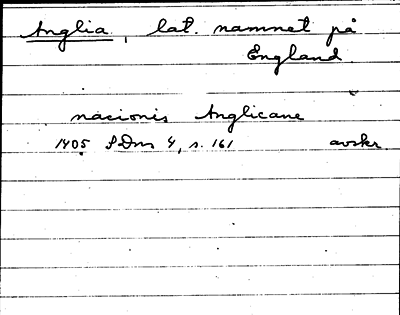 Anglia, lat. namnet på
England
nacionis Anglicane
1405 SDns 4, s. 161 avskr